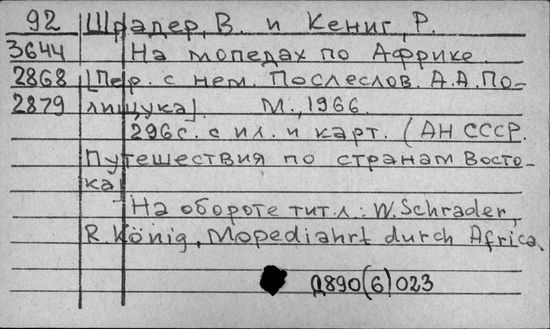 92 Шрадер, В. и Кениг, Р.
3644 На мопедах по Африке.
2868 [Пер. с нем. Послеслов. А.А.По-
2879 лищука]. М., 1966.
296с. с ил. и карт. (АН СССР.
Путешествия по странам Восто-
ка)
На обороте тит.л.: W. Schrader,
R. König, Mopediahrt durch Africa.
Д890(6)023